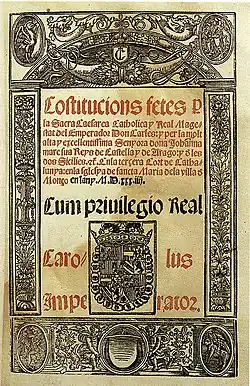 Costitucions fetes
la Sacra Caesarea Catholica y Real Mage-
stat del Emperador Don Carles: y per la molt
alta y excellentissima Senyora dona Johãna
mare sua Reys de Castella y de Arago: y
dos Sicilies. En la tercera Cort de Catha-
lunya: en la sglesya de sancta Maria de la villa
Monço en lany M.D.xxx.
Cum priuilegio Real
Caro lus
Impe rator.